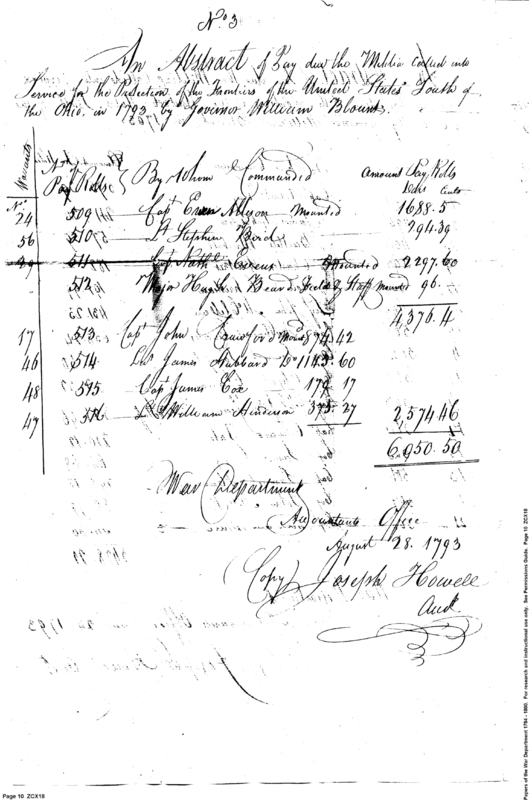 No. 3
An Abstract of Pay due the Militia called into
Service for the Protection of the Frontiers of the United States South of
the Ohio. in 1793 by Govinor William Blount.
Warrants No. Pay Rolls By Whom Commanded Amount Pay Rolls
No. Dolls Cents
24 509 Capt Evan Allison Mounted 1688.5
56 510 Lt Stephen Bird 294.39
29 511 Capt Nathl Evens Mounted 2297.60
512 Major Hugh Beard Field & Staff Mounted 96.
4376.4
17 513 Capt John Crawford Mound 874.42
46 514 James Hubbard Do 1143.60
48 515 Capt James Cox 179 17
47 516 Lt William Henderson 375.27 2,574.46
6,950.50
War Department
Accountants Office
August 28. 1793
Copy Joseph Howell
Page 10 ZCX18
Papers of the War Department 1784 - 1800. For research and instructional use only. See Permissions Guide. Page 10 ZCX18